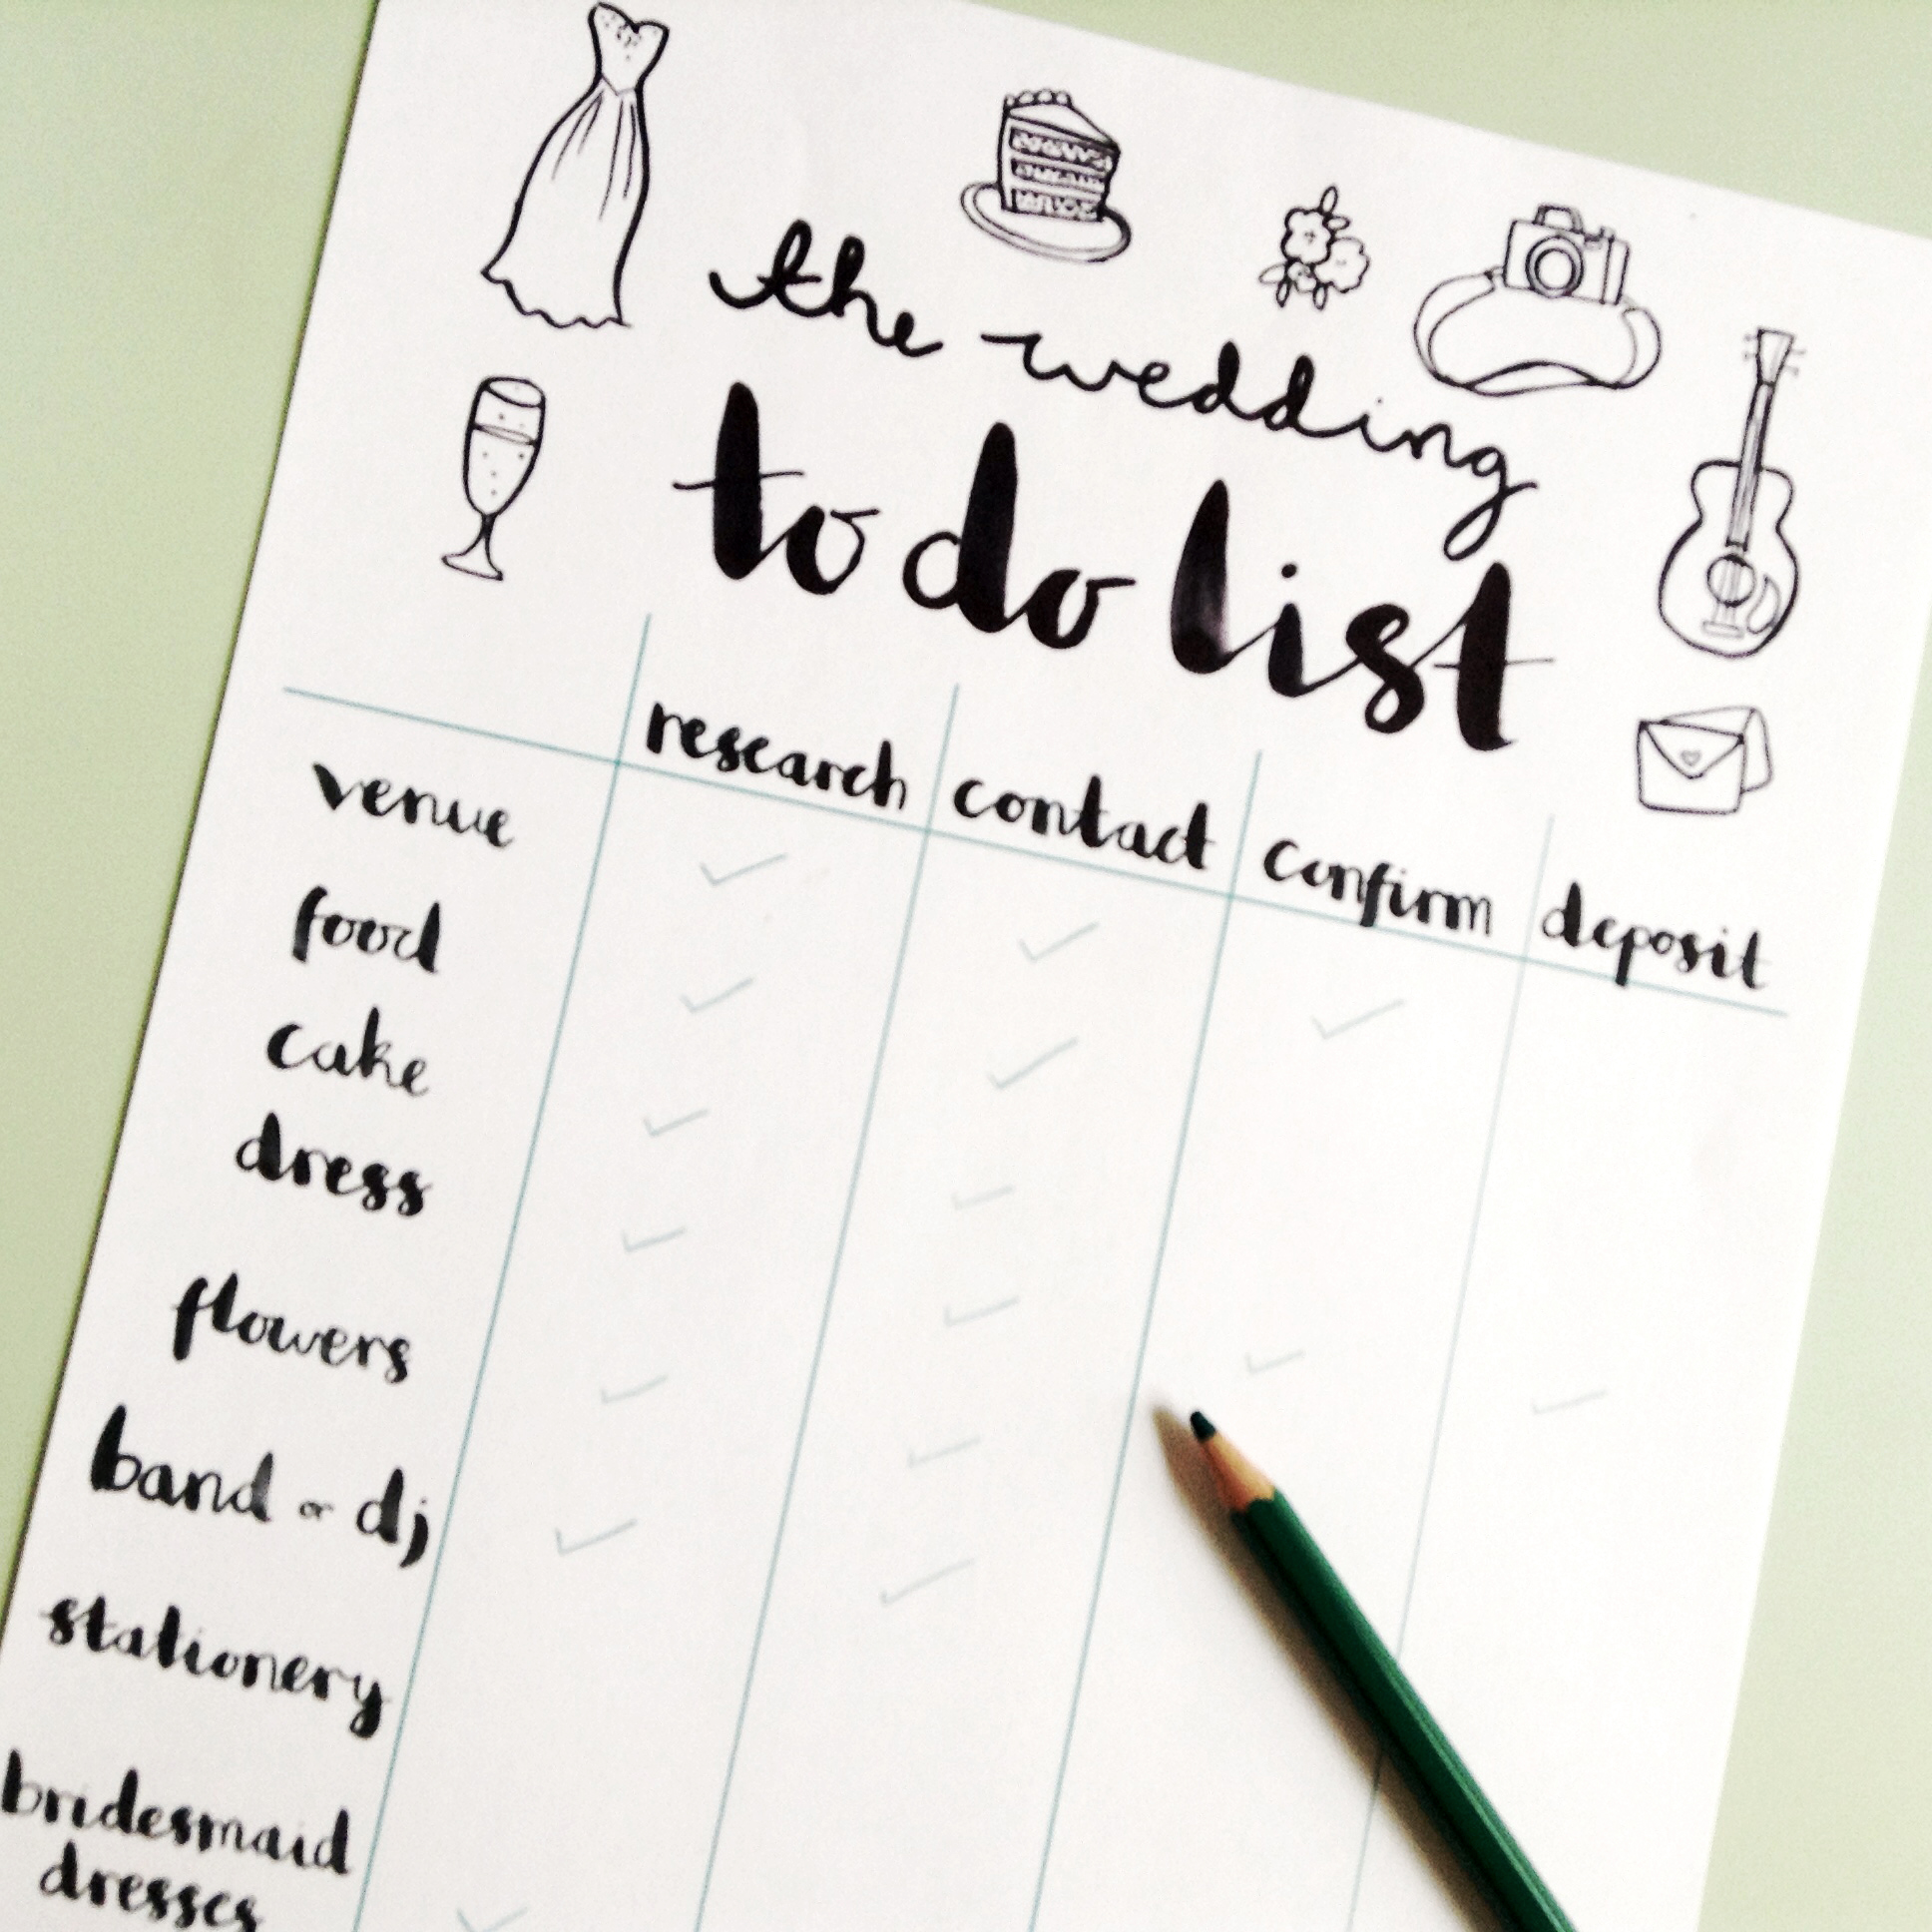 the wedding
to do list
research contact confirm deposit
venue
food
cake
dress
flowers
band or dj
stationery
bridesmaid
dresses